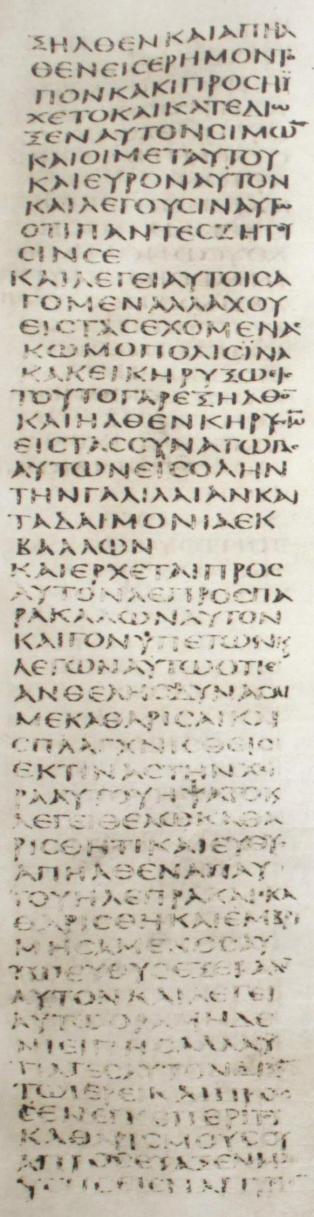 ΞΗΛΘΕΝΚΑΙΑΠΗΛ
ΘΕΝΕΙϹΕΡΗΜΟΝΤ
ΠΟΝΚΑΚΙΠΡΟϹΗΫ
ΧΕΤΟΚΑΙΚΑΤΕΔΙω
ΞΕΝΑΥΤΟΝϹΙΜΩ̅
ΚΑΙΟΙΜΕΤΑΥΤΟΥ
ΚΑΙΕΥΡΟΝΑΥΤΟΝ
ΚΑΙΛΕΓΟΥϹΙΝΑΥΤω
ΟΤΙΠΑΝΤΕϹΖΗΤΟΥ
ϹΙΝϹΕ
ΚΑΙΛΕΓΕΙΑΥΤΟΙϹΑ
ΓΩΜΕΝΑΛΛΑΧΟΥ
ΕΙϹΤΑϹΕΧΟΜΕΝΑϹ
ΚΩΜΟΠΟΛΙϹΪΝΑ
ΚΑΚΕΙΚΗΡΥΞΩΕΙϹ
ΤΟΥΤΟΓΑΡΕΞΗΛΘΟ̅
ΚΑΙΗΛΘΕΝΚΗΡΥϹϹω̅
ΕΙϹΤΑϹϹΥΝΑΓΩΓΑϹ
ΑΥΤΩΝΕΙϹΟΛΗΝ
ΤΗΝΓΑΛΙΛΑΙΑΝΚΑΙ
ΤΑΔΑΙΜΟΝΙΑΕΚ
ΒΑΛΛΩΝ
ΚΑΙΕΡΧΕΤΑΙΠΡΟϹ
ΑΥΤΟΝΛΕΠΡΟϹΠΑ
ΡΑΚΑΛΩΝΑΥΤΟΝ
ΚΑΙΓΟΝΥΠΕΤΩΝΚ
ΛΕΓΩΝΑΥΤΩΟΤΙΕ
ΑΝΘΕΛΗϹΔΥΝΑϹΑΙ
ΜΕΚΑΘΑΡΙϹΑΙΚΑΙ
ϹΠΛΑΓΧΝΙϹΘΕΙϹ
ΕΚΤΙΝΑϹΤΗΝΧΕΙ
ΡΑΑΥΤΟΥΗΨΑΤΟΚ
ΛΕΓΕΙΘΕΛΩΚΑΘΑ
ΡΙϹΘΗΤΙΚΑΙΕΥΘΥϹ
ΑΠΗΛΘΕΝΑΠΑΥ
ΤΟΥΗΛΕΠΡΑΚΑΙΕΚΑ
ΘΑΡΙϹΘΗΚΑΙΕΜΒΡΙ
ΜΗϹΑΜΕΝΟϹΑΥ
ΤΩΕΥΘΥϹΕΞΕΒΑΛΕΝ
ΑΥΤΟΝΚΑΙΛΕΓΕΙ
ΑΥΤΩΟΡΑΜΗΔΕ
ΝΙΕΙΠΗϹΑΛΛΑΥ
ΠΑΓΕϹΑΥΤΟΝΔΕΙΞΟΝ
ΤΩΙΕΡΕΙΚΑΙΠΡΟϹ
ΕΝΕΓΚΕΠΕΡΙΤΟΥ
ΚΑΘΑΡΙϹΜΟΥϹΟΥ
ΑΠΡΟϹΕΤΑΞΕΝΜΩ
ΥϹΗϹΕΙϹΜΑΡΤΥΡΙ